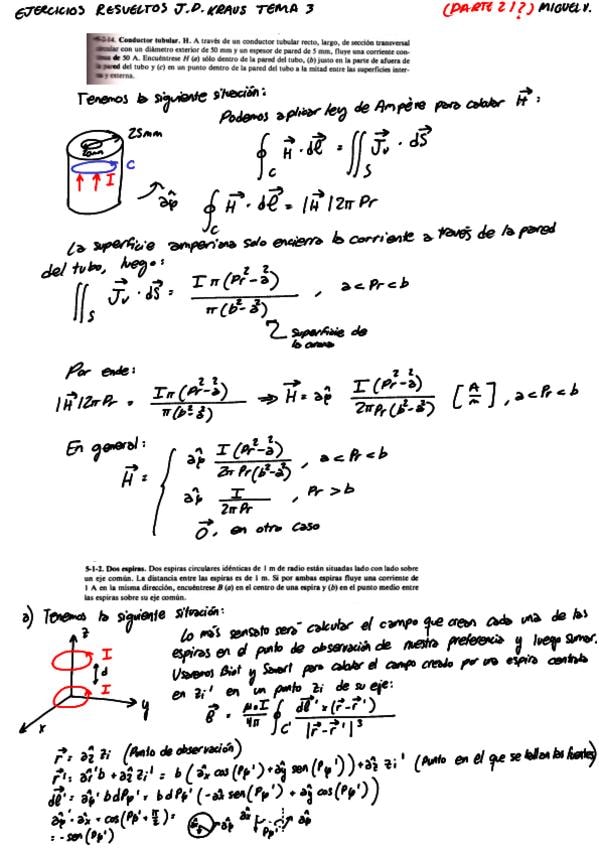 EJERCICIOS RESUELTOS J.D. KRAUS TEMA 3 (PARTE 2!?) MIGUEL V.
5-2-14. Conductor tubular. H. A través de un conductor tubular recto, largo, de sección transversal
circular con un diámetro exterior de 50 mm y un espesor de pared de 5 mm, fluye una corriente con-
tinua de 50 A. Encuéntrese H (a) sólo dentro de la pared del tubo, (b) justo en la parte de afuera de
la pared del tubo y (c) en un punto dentro de la pared del tubo a la mitad entre las superficies inter-
na y externa.
Tenemos la siguiente situación:
Podemos aplicar ley de Ampère para calcular H⃗:
25mm
C
I
âφ
∮_C H⃗ · dℓ⃗ = ∬_S J⃗v · dS⃗
∮_C H⃗ · dℓ⃗ = |H⃗| 2π Pr
La superficie amperiana solo encierra la corriente a través de la pared
del tubo, luego:
∬_S J⃗v · dS⃗ = Iπ(Pr²-a²) / π(b²-a²) , a<Pr<b
Superficie de
la corona
Por ende:
|H⃗| 2π Pr = Iπ(Pr²-a²) / π(b²-a²) ⇒ H⃗ = âφ I(Pr²-a²) / 2πPr(b²-a²) [A/m], a<Pr<b
En general:
H⃗ = { âφ I(Pr²-a²) / 2πPr(b²-a²) , a<Pr<b
âφ I / 2πPr , Pr>b
0⃗, en otro caso
5-1-2. Dos espiras. Dos espiras circulares idénticas de 1 m de radio están situadas lado con lado sobre
un eje común. La distancia entre las espiras es de 1 m. Si por ambas espiras fluye una corriente de
1 A en la misma dirección, encuéntrese B (a) en el centro de una espira y (b) en el punto medio entre
las espiras sobre su eje común.
a) Tenemos la siguiente situación:
Lo más sensato será calcular el campo que crean cada una de las
espiras en el punto de observación de nuestra preferencia y luego sumar.
Usaremos Biot y Savart para calcular el campo creado por una espira centrada
en zi' en un punto zi de su eje:
z
I
d
I
y
x
B⃗ = μ₀I/4π ∮_C' dℓ⃗' × (r⃗-r⃗') / |r⃗-r⃗'|³
r⃗ = âz zi (Punto de observación)
r⃗' = âr' b + âz zi' = b(âx cos(Pφ') + ây sen(Pφ')) + âz zi' (Punto en el que se hallan las fuentes)
dℓ⃗' = âφ' b dPφ' = b dPφ' (-âx sen(Pφ') + ây cos(Pφ'))
âφ' · âx = cos(Pφ' + π/2) =
= -sen(Pφ')
âφ
âx
Pφ'
âφ